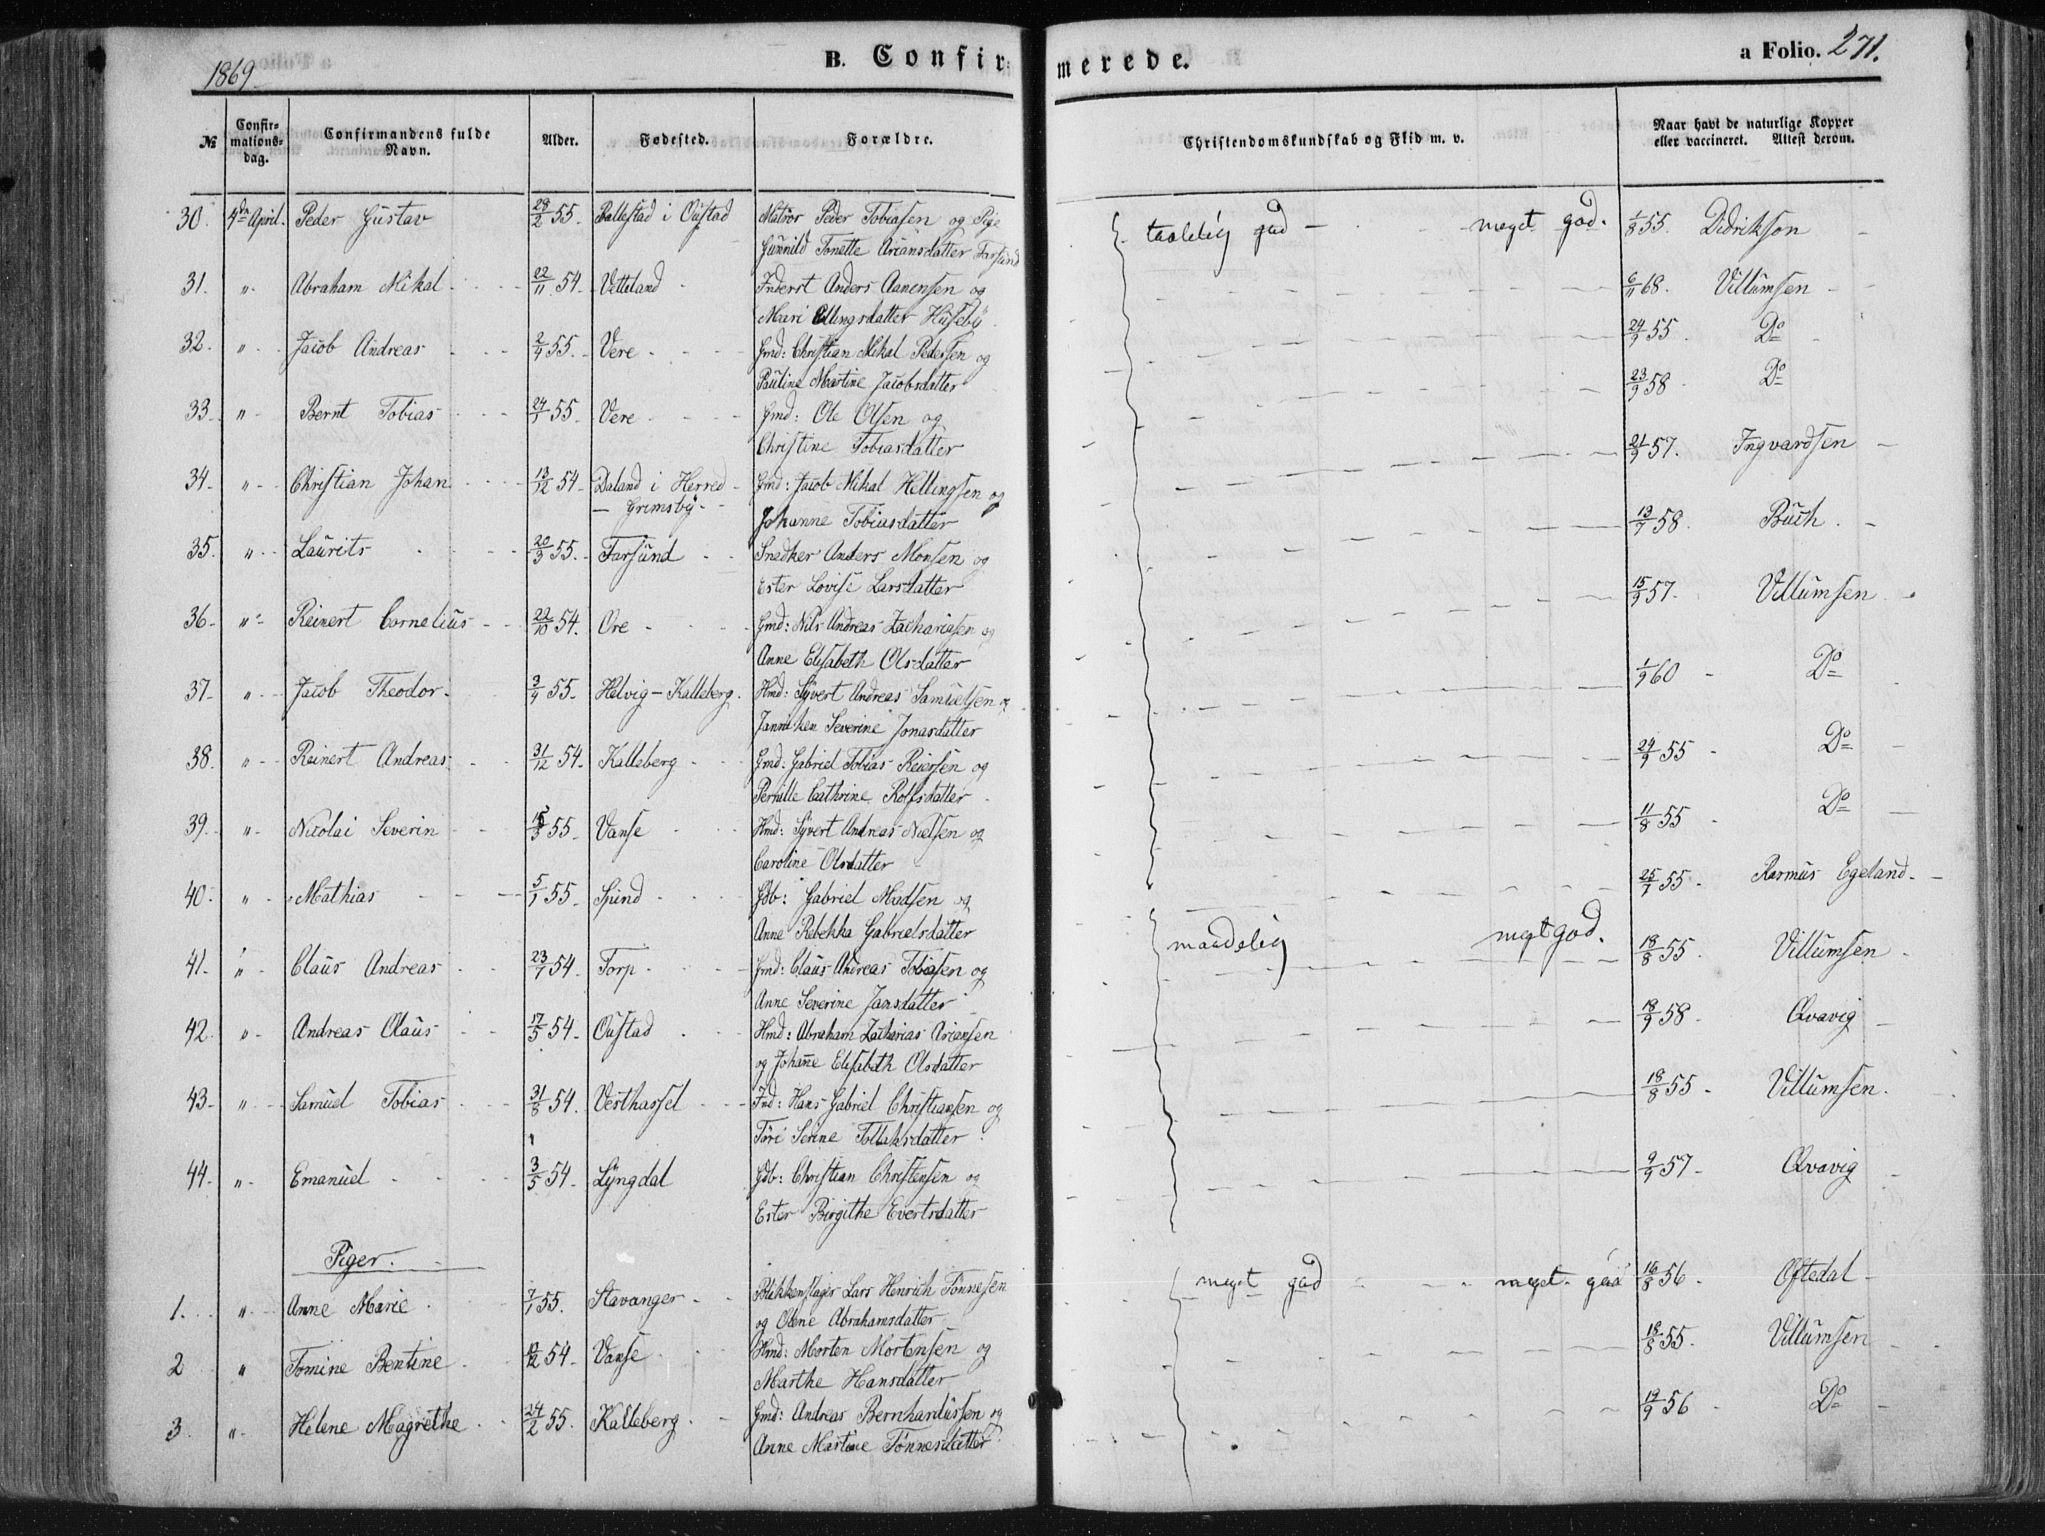 1869.
B. Confirmerede.
a Folio. 271.
№ Confirmationsdag. Confirmandens fulde Navn. Alder. Fødested. Forældre. Christendomskundskab og Flid m. v. Naar havt de naturlige Kopper eller vaccineret. Attest derom.
30. 4de April. Peder Gustav 28/2 55. Ballestad i Oustad Matros Peder Tobiasen og Pige taalelig god - meget god. 1/8 55. Didrikson
Gunnild Tonette Ariansdatter Farsund
31. " Abraham Mikal 22/11 54. Vetteland Inderst Anders Aanensen og 6/11 68. Villumsen
Mari Ellingsdatter Huseby
32. " Jacob Andreas 2/4 55. Vere Gmd: Christian Mikal Pedersen og 24/9 55. Do
Pauline Martine Jacobsdatter
33. " Bernt Tobias 24/1 55. Vere Gmd: Ole Olsen og 23/9 58. Do
Christine Tobiasdatter
34. " Christian Johan 13/12 54. Daland i Herred Gmd: Jacob Mikal Hellingsen og 21/9 57. Ingvardsen
- Grimsby. Johanne Tobiasdatter
35. " Laurits 20/3 55. Farsund Snedker Anders Monsen og 13/7 58. Buch.
Ester Lovise Larsdatter
36. " Reinert Cornelius 22/10 54. Ore Gmd: Nils Andreas Zachariasen og 15/9 57. Villumsen
Anne Elisabeth Olsdatter
37. " Jacob Theodor. 3/4 55. Helvig - Kalleberg. Hmd: Syvert Andreas Samuelsen og 1/9 60 Do
Janniken Severine Jonasdatter
38. " Reinert Andreas 31/12 54. Kalleberg Gmd: Gabriel Tobias Reiersen og 24/9 55 Do
Pernille Cathrine Rolfsdatter
39. " Nicolai Severin 55. Vanse Hmd: Syvert Andreas Nielsen og 11/8 55 Do
Caroline Olsdatter
40. " Mathias 5/1 55. Spind Gdb: Gabriel Madsen og 25/7 55. Rasmus Egeland.
Anne Rebekka Gabrielsdatter
41. " Claus Andreas 23/7 54. Torp Gmd: Claus Andreas Tobiasen og maadelig meget god. 18/8 55. Villumsen
Anne Severine Jansdatter
42. " Andreas Olaus 17/5 54. Oustad Hmd: Abraham Zacharias Ariansen 18/9 58 Qvavig
og Johanne Elisabeth Olsdatter
43. " Samuel Tobias 31/8 54. Vesthassel Ind: Hans Gabriel Christiansen og 18/8 55 Villumsen.
Tøri Serine Tollaksdatter
44. " Emanuel 3/5 54. Lyngdal Gdb: Christian Christensen og 9/9 57. Qvavig
Ester Birgithe Evertsdatter
Piger.
1. " Anne Marie 7/1 55. Stavanger Blikkenslager Lars Henrich Tønnesen meget god meget god 16/8 56. Oftedal
og Olene Abrahamsdatter
2 " Tomine Bentine 54. Vanse Hmd: Morten Mortensen og 18/8 55. Villumsen
Marthe Hansdatter
3. " Helene Magrethe 24/2 55. Kalleberg Gmd: Andreas Bernhardussen og 19/9 56 Do
Anne Martine Tønnesdatter